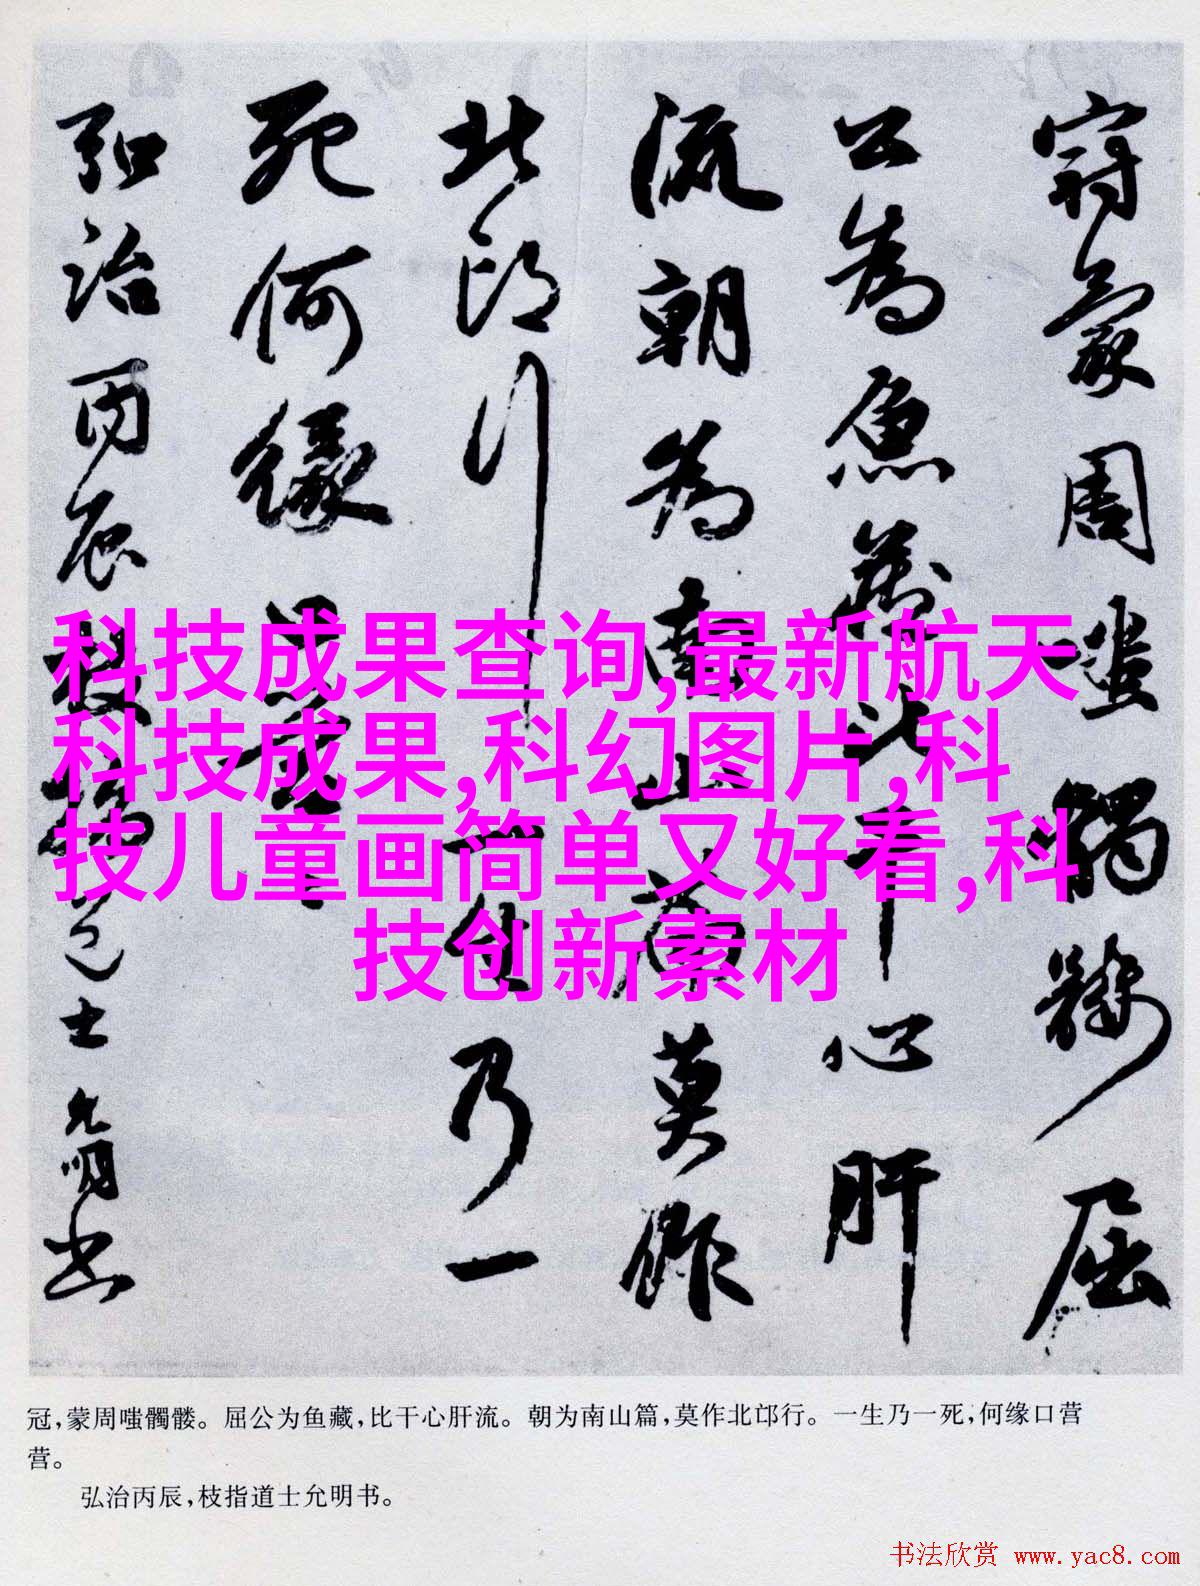 冠蒙周嗤髑髅屈
公为鱼藏比干心肝
流朝为南山篇莫作
北邙行一生乃一
死何缘口营营
弘治丙辰枝指道士允明书
科技成果查询,最新航天
科技成果,科幻图片,科
技儿童画简单又好看,科
技创新素材
冠，蒙周嗤髑髅。屈公为鱼藏，比干心肝流。朝为南山篇，莫作北邙行。一生乃一死，何缘口营
营。
弘治丙辰，枝指道士允明书。
书法欣赏 www.yac8.com